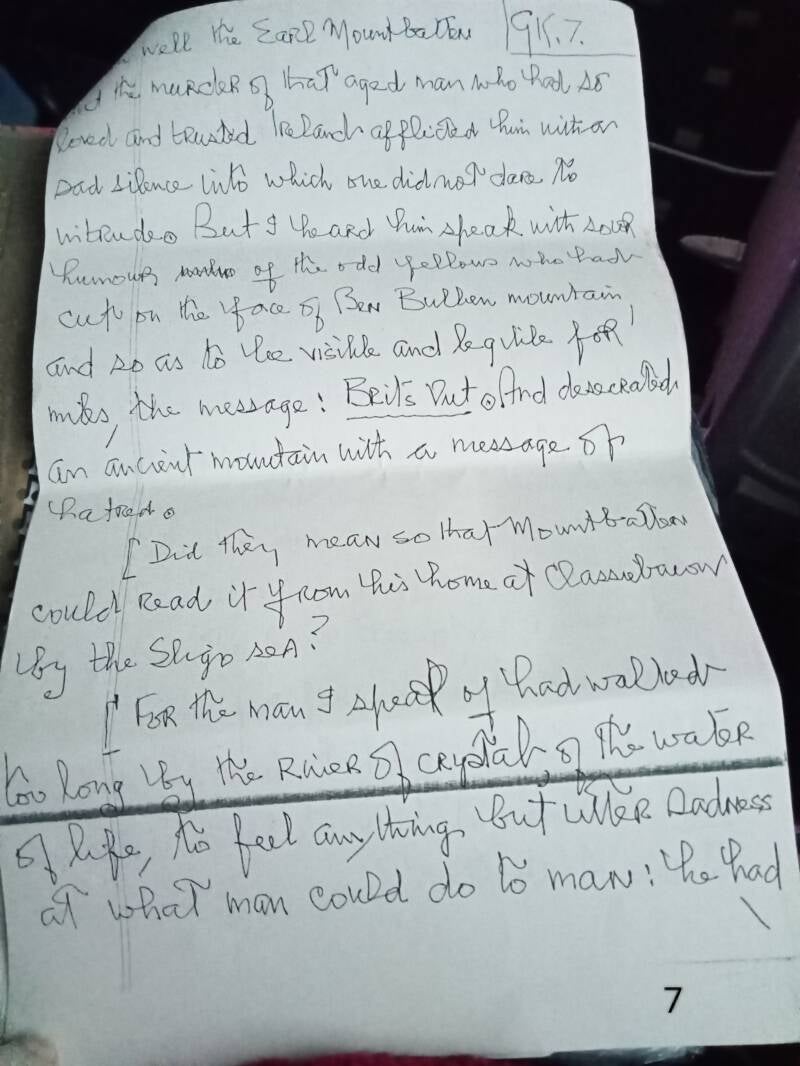 well the Earl Mountbatten GK.7.
and the murder of that aged man who had so
loved and trusted Ireland afflicted him with a
sad silence into which one did not dare to
intrude. But I heard him speak with sour
humour of the odd fellows who had
cut on the face of Ben Bulben mountain,
and so as to be visible and legible for
miles, the message: Brits Out. And desecrated
an ancient mountain with a message of
hatred.
[Did they mean so that Mountbatten
could read it from his home at Classiebawn
by the Sligo sea?
[For the man I speak of had walked
too long by the River of crystal, of the water
of life, to feel anything but utter sadness
at what man could do to man: he had
7